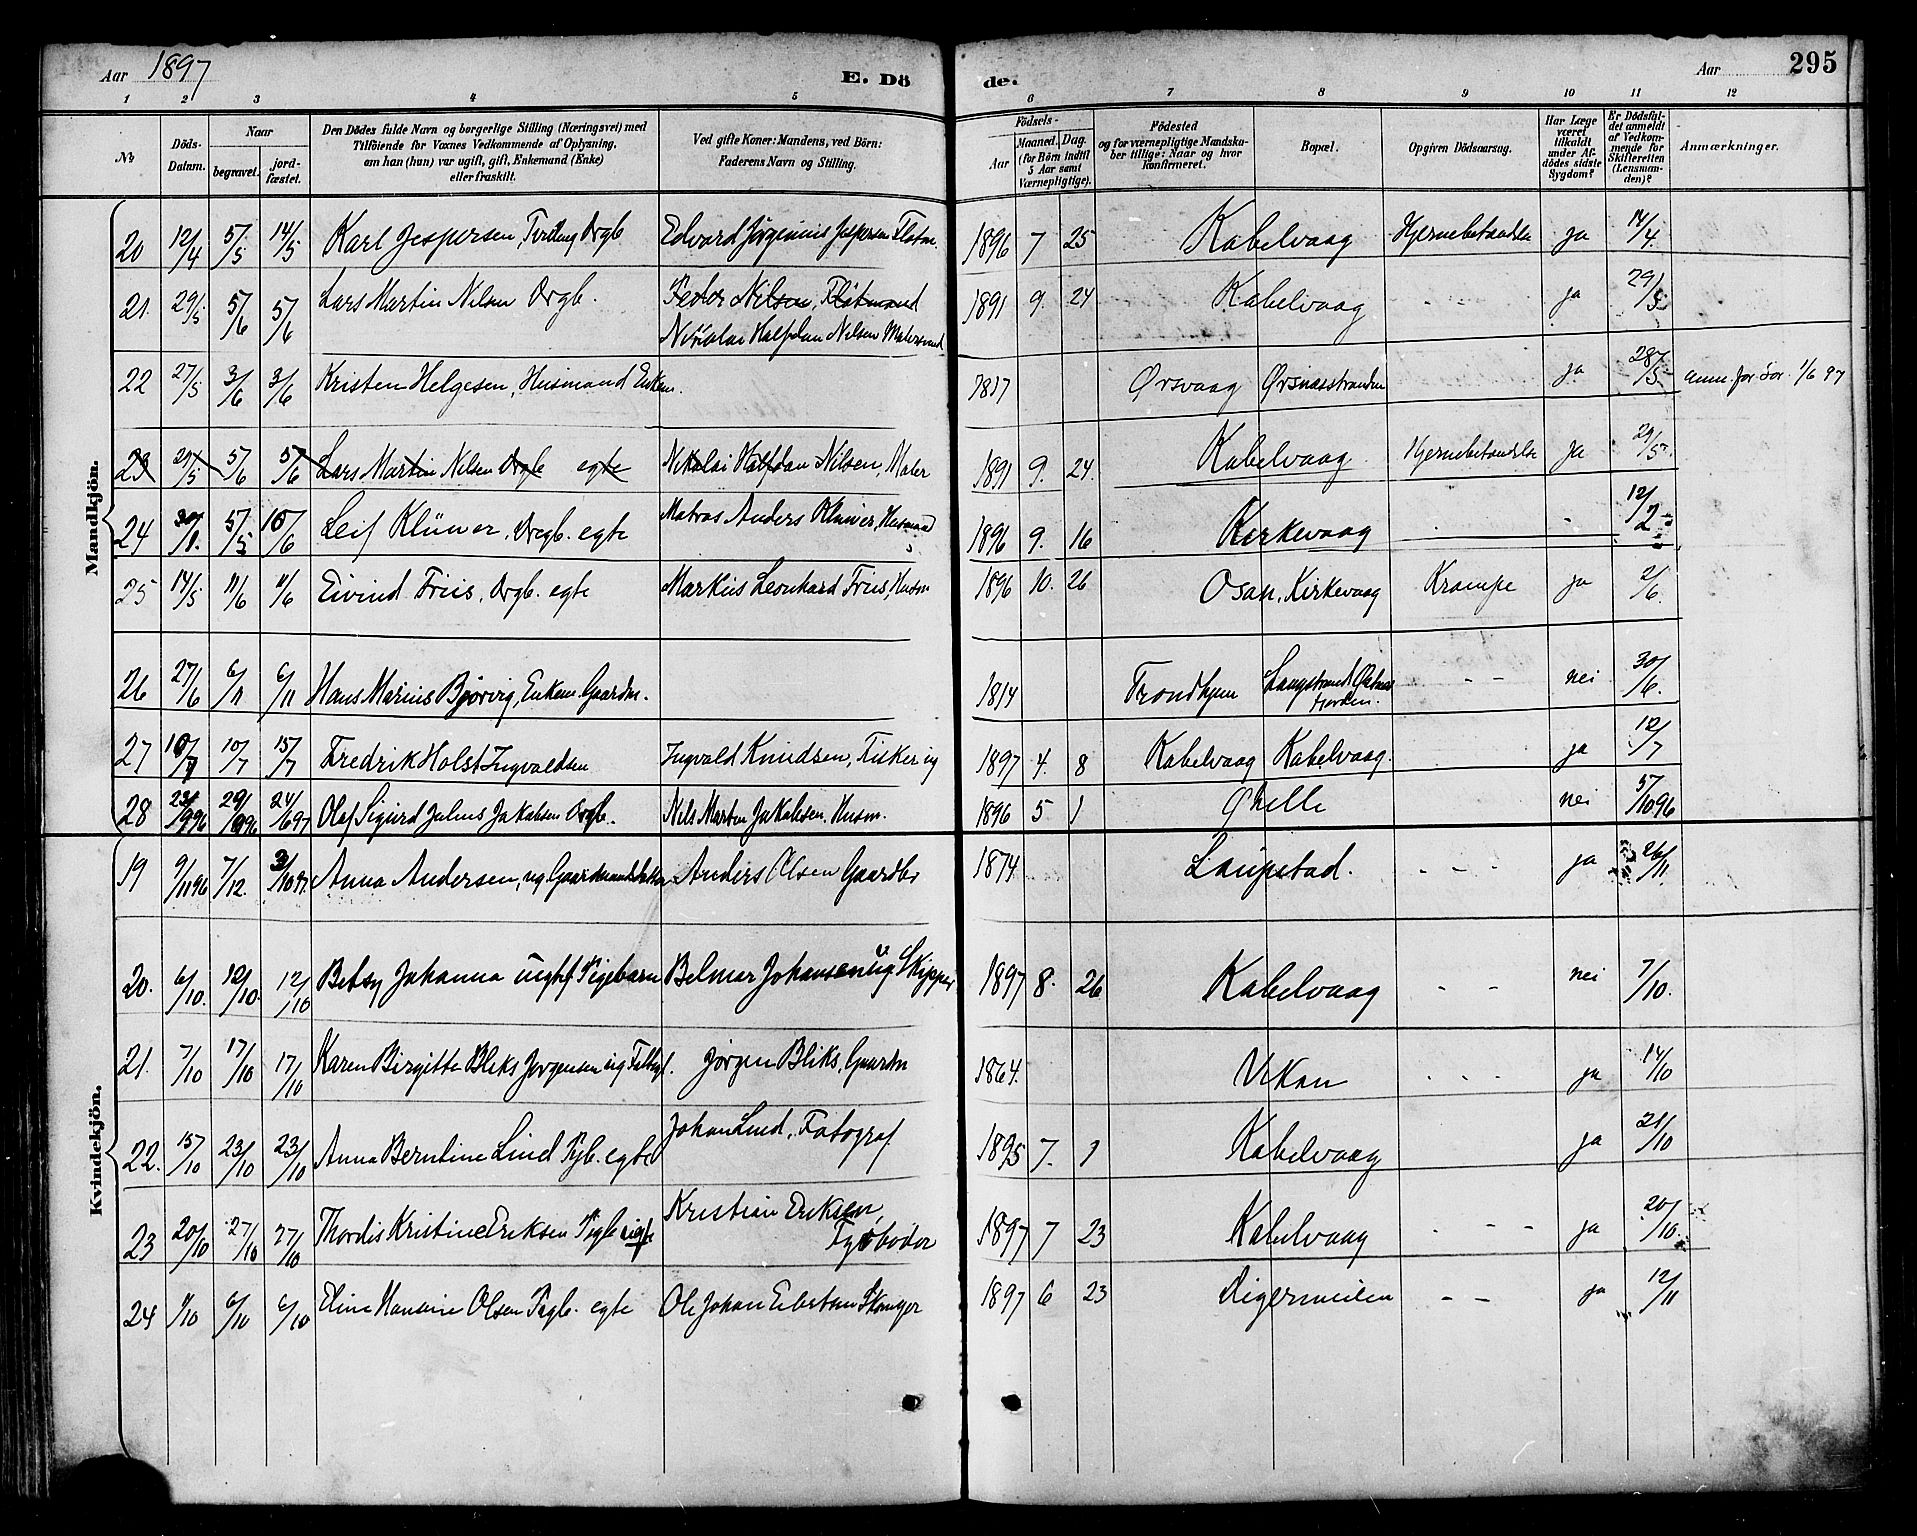 Aar 1897
E. Dö
de.
Aar
295
1 2 3 4 5 6 7 8 9 10 11 12
No
Döds-Datum.
Naar
begravet.
jord-fæstet.
Den Dödes fulde Navn og borgerlige Stilling (Næringsvei) med
Tilföiende for Voxnes Vedkommende af Oplysning,
om han (hun) var ugift, gift, Enkemand (Enke)
eller fraskilt.
Ved gifte Koner: Mandens, ved Börn:
Faderens Navn og Stilling.
Födsels-
Aar
Maaned.
Dag.
(for Börn indtil
5 Aar samt
Værnepligtige).
Födested
og for værnepligtige Mandska-
ber tillige: Naar og hvor
konfirmeret.
Bopæl.
Opgiven Dödsaarsag.
Har Læge
været
tilkaldt
under Af-
dödes sidste
Sygdom?
Er Dödsfal-
det anmeldt
af Vedkom-
mende for
Skifteretten
(Lensman-
den)?
Anmærkninger.
Mandkjön.
20 12/4 5/5 14/5 Karl Jespersen, Tvilling Drgb Edvard Jörginius Jespersen Flotm. 1896 7 25 Kabelvaag Hjernebetændelse ja 14/4
21. 29/5 5/6 5/6 Lars Martin Nilsen Drgb. Peder Nilsen, Flötmand 1891 9. 24 Kabelvaag - - - ja 29/5
Nikolai Halfdan Nilsen Malersvend
22 27/5 3/6 3/6 Kristen Helgesen, Husmand Enkem. 1817 Ørsvaag Ørsnæsstranden ja 28/5 Anm. for Sor. 1/6 97
23 29/5 5/6 5/6 Lars Martin Nilsen Drgb egte Nikolai Halfdan Nilsen, Maler 1891 9. 24. Kabelvaag Hjernebetændelse ja 29/5
24 30/1. 5/5 10/6 Leif Klüwer, Drgb. egte Matras Anders Klüwer, Husmand 1896 9. 16 Kirkevaag 12/2
25 14/5 11/6 11/6 Eivind Friis, Drgb. egte Markus Leonhard Friis, Husm 1896 10. 26 Osan, Kirkevaag Krampe ja 2/6
26 27/6 6/11 6/11 Hans Marius Bjørvig, Enkem. Gaardm. 1814 Trondhjem Langstrand - - nei 30/6.
27 10/7 10/7 15/7 Fredrik Holst Ingvaldsen Ingvald Knudsen, Fisker ug 1897 4. 8 Kabelvaag Kabelvaag. ja 12/7
28 23/9 96 29/9 96 24/6 97 Olaf Sigurd Julius Jakobsen Drgb. Nils Martin Jakobsen, Husm. 1896 5 1 Ghelle nei 5/10 96
Kvindekjön.
19 9/11 96 7/12. 3/10 97. Anna Andersen, ug Gaardmandsdatter Anders Olsen Gaardbr 1874 Laupstad. - - - ja 26/11
20. 6/10. 12/10. 12/10 Betsy Johanna uægte Pigebarn Belmar Johansen ug. Skipper 1897 8. 26 Kabelvaag - - nei 7/10.
21. 7/10 17/10 17/10 Karen Birgitte Bliks Jørgensen ug Jørgen Bliks, Gaardm 1864. Vekan - - - ja 14/10
22. 15/10 23/10 23/10 Anna Berntine Lind Pgb. egte Johan Lind, Fotograf 1895 7. 1 Kabelvaag ja 21/10
23 20/10 27/10 27/10 Thordis Kristine Eriksen Pigb uegte Kristian Eriksen, 1897 7 23 Kabelvaag - - - ja 20/10.
24 6/10 6/10 Eline Hansine Olsen Pigb. egte Ole Johan 1897 6 23 Digermulen - - - ja 12/11